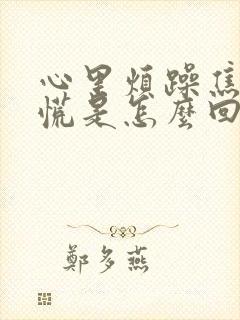 心里煩躁焦
慌是怎麼回
鄭多燕